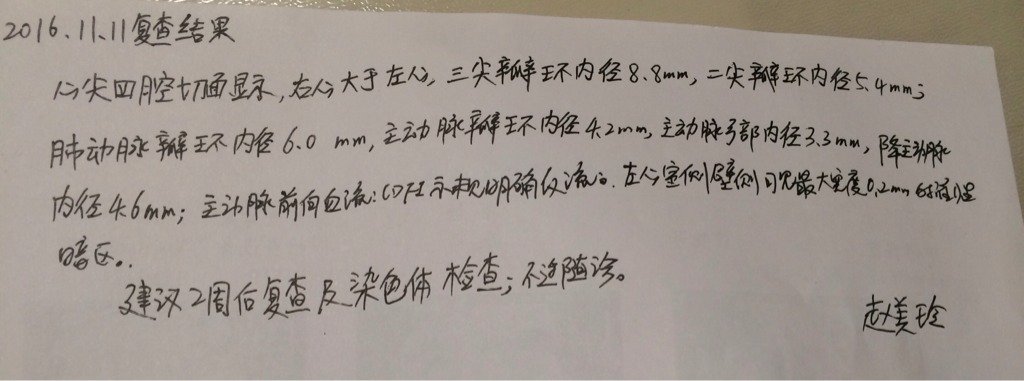 2016.11.11复查结果
心尖四腔切面显示,右心大于左心,三尖瓣环内径8.8mm,二尖瓣环内径5.4mm;
肺动脉瓣环内径6.0 mm,主动脉瓣环内径4.2mm,主动脉弓部内径3.3mm,降主动脉
内径4.6mm;主动脉前向血流;CDFI示未见明确反流。左心室侧壁侧可见最大宽度0.2mm
暗区。
建议2周后复查及染色体检查;不适随诊。
赵美玲